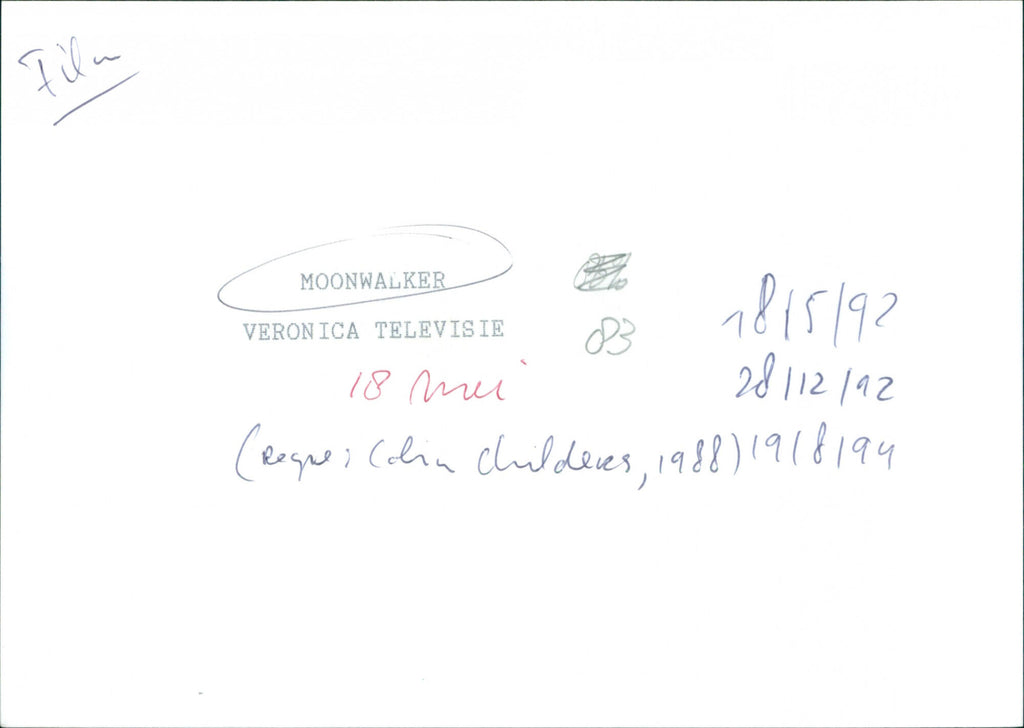 Film
MOONWALKER
VERONICA TELEVISIE
83
18 mei
18/5/92
28/12/92
(regie: Colin Childers, 1988) 19/8/94